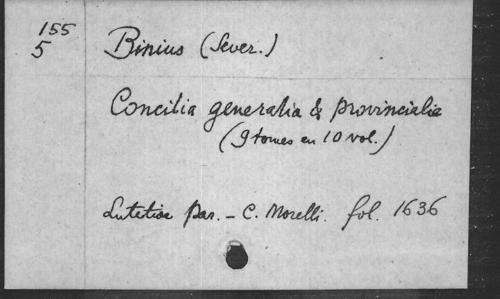 155
5
Binius (Sever.)
Concilia generalia & provincialia
(9 tomes en 10 vol.)
Lutetiae Par. - C. Morelli. fol. 1636